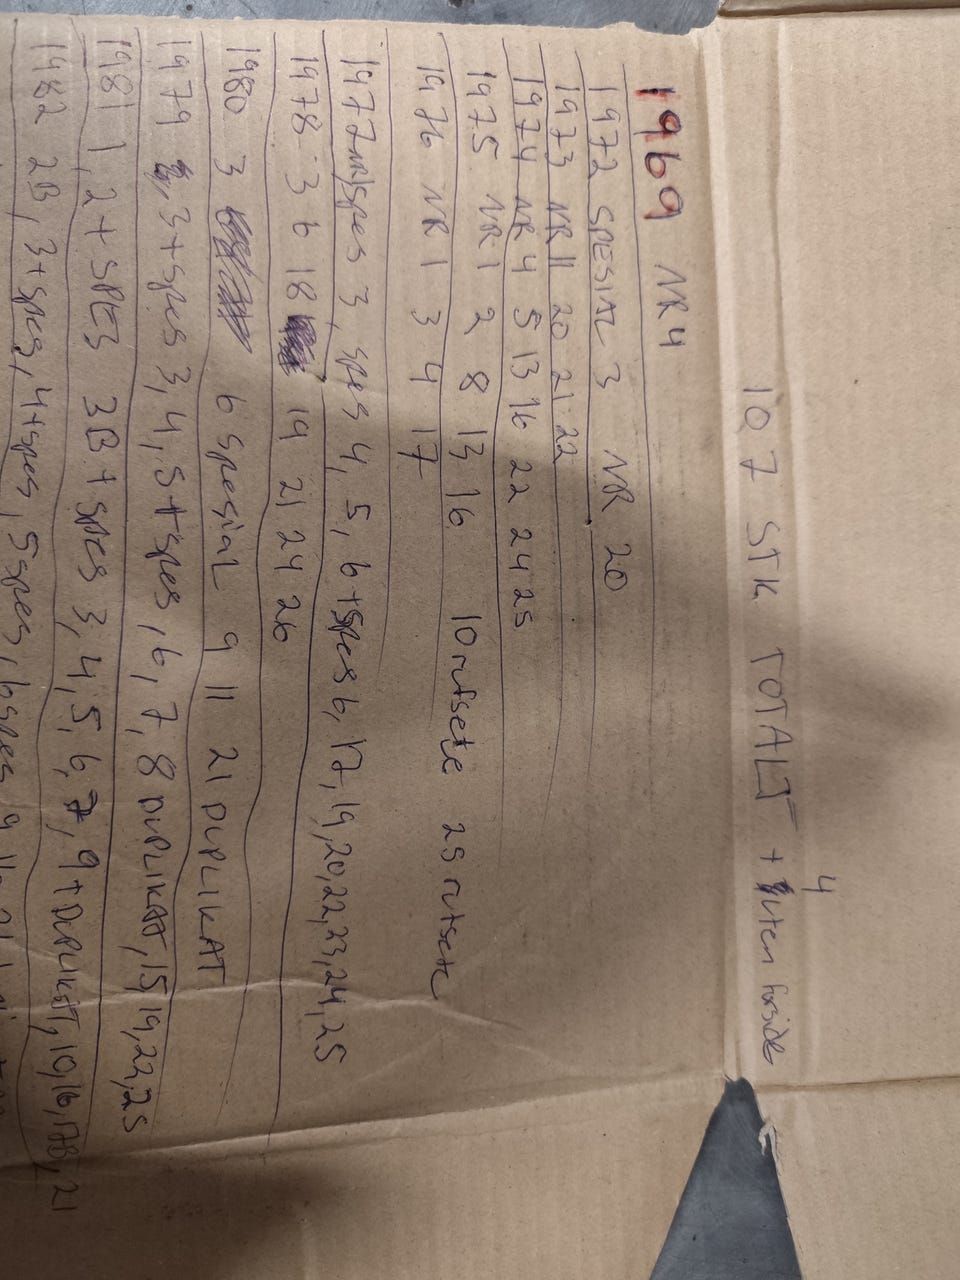 107 STK TOTALT + 4 uten forside
1969 NR 4
1972 SPESIAL 3 NR 20
1973 NR 11 20 21 22
1974 NR 4 5 13 16 22 24 25
1975 NR 1 2 8 13 16 10 rufsete 25 rufsete
1976 NR 1 3 4 17
1977 NR 1 spes 3, spes 4, 5, 6+spes 6, 17, 19, 20, 22, 23, 24, 25
1978 - 3 6 18 19 21 24 26
1980 3 6 spesial 9 11 21 DUPLIKAT
1979 3+spes 3, 4, 5+spes, 6, 7, 8 DUPLIKAT, 15, 19, 22, 25
1981 1, 2+SPES 3B+spes 3, 4, 5, 6, 7, 9+DUPLIKAT, 10, 16, 17B, 21
1982 2B, 3+spes, 4+spes, 5spes, 6spes, 9